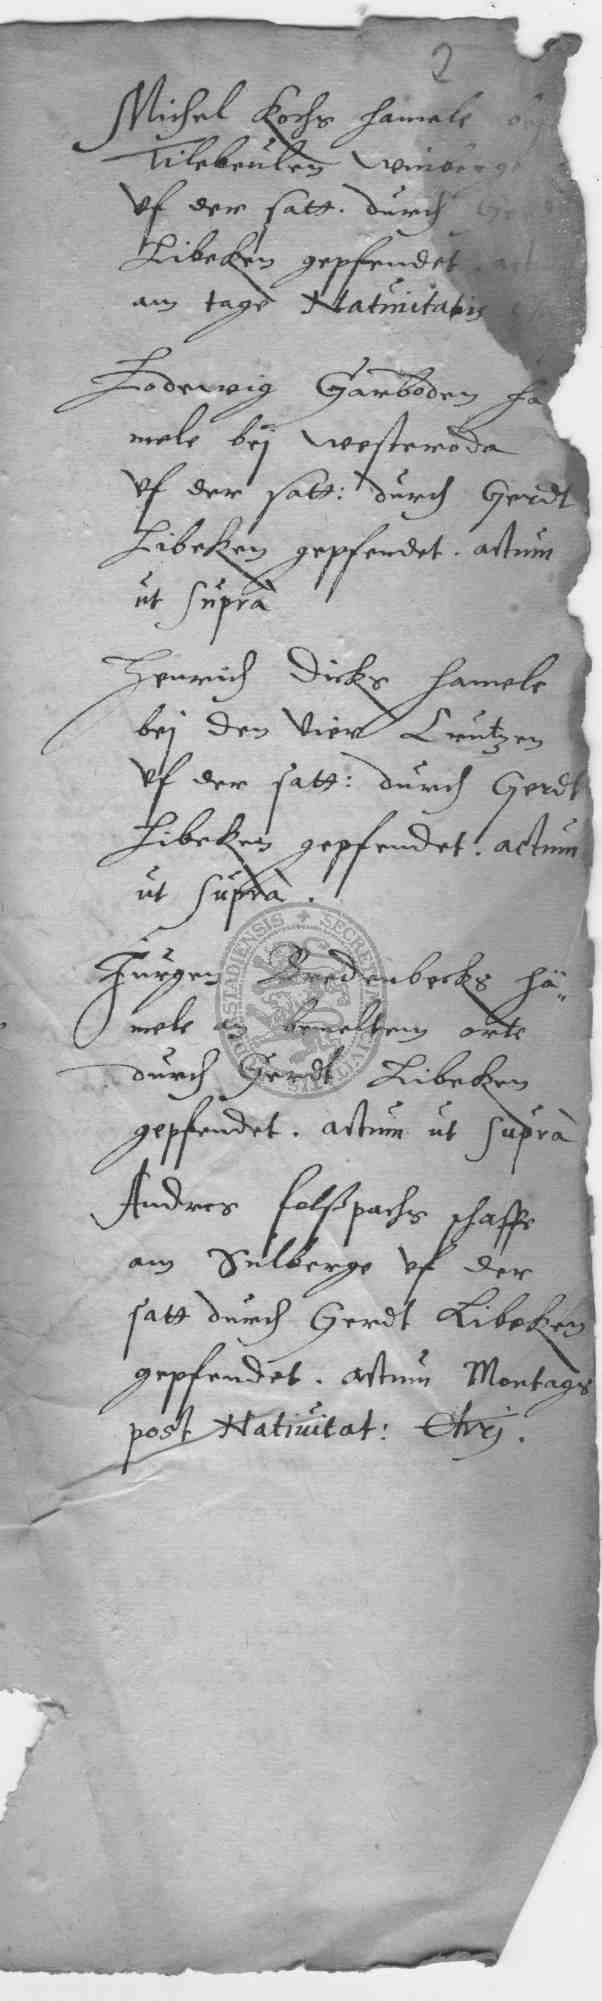 2
Michel Kochs hamele
Tilebeulen winberge
vf der satt. durch
Libeken gepfendet.
am tage Natiuitatis
Lodewig Garboden ha
mele bej westeroda
vf der satt: durch Gerdt
Libeken gepfendet. actum
ut suprà
Henrich Dicks hamele
bej den vier Crutzen
vf der satt: durch Gerdt
Libeken gepfendet. actum
ut suprà.
Jurgen Bredenbecks hä„
mele an bemeltem orte
durch Gerdt Libeken
gepfendet. actum ut suprà
Andres schaffe
am Sulberge vf der
satt durch Gerdt Libeken
gepfendet. actum Montags
post Natiuitat: Chrj.